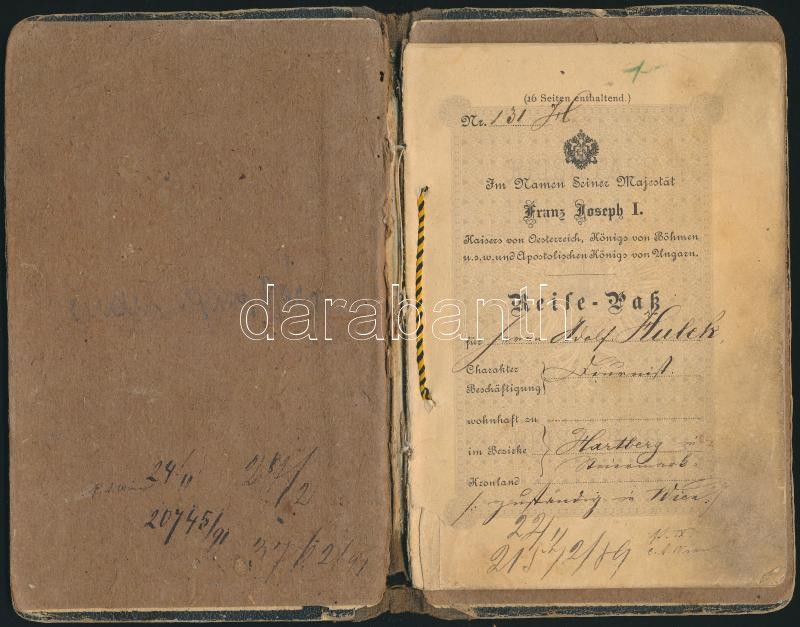 24/11 
20745/91
(16 Seiten enthaltend.)
Nr. 131 H
Im Namen Seiner Majestät
Franz Joseph I.
Kaisers von Oesterreich, Königs von Böhmen
u.s.w. und Apostolischen Königs von Ungarn.
Reise-Paß
für Herrn Adolf Hulek,
Charakter
Beschäftigung } Diurnist.
wohnhaft zu
im Bezirke } Hartberg in
Kronland } Steiermark
zuständig in Wien.
darabanth